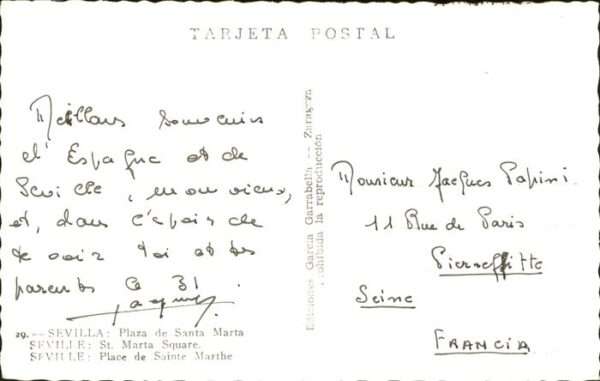 TARJETA POSTAL
Meillurs souvenirs
d'Espagne et de
Seville, mon vieux,
et, dans l'espoir de
te voir toi et tes
parents ce 31
Jacques
29. -- SEVILLA: Plaza de Santa Marta
SEVILLE: St. Marta Square.
SEVILLE: Place de Sainte Marthe
Ediciones García Garrabella -- Zaragoza
Prohibida la reproducción
Monsieur Jacques Papini
11 Rue de Paris
Pierrefitte
Seine
FRANCIA